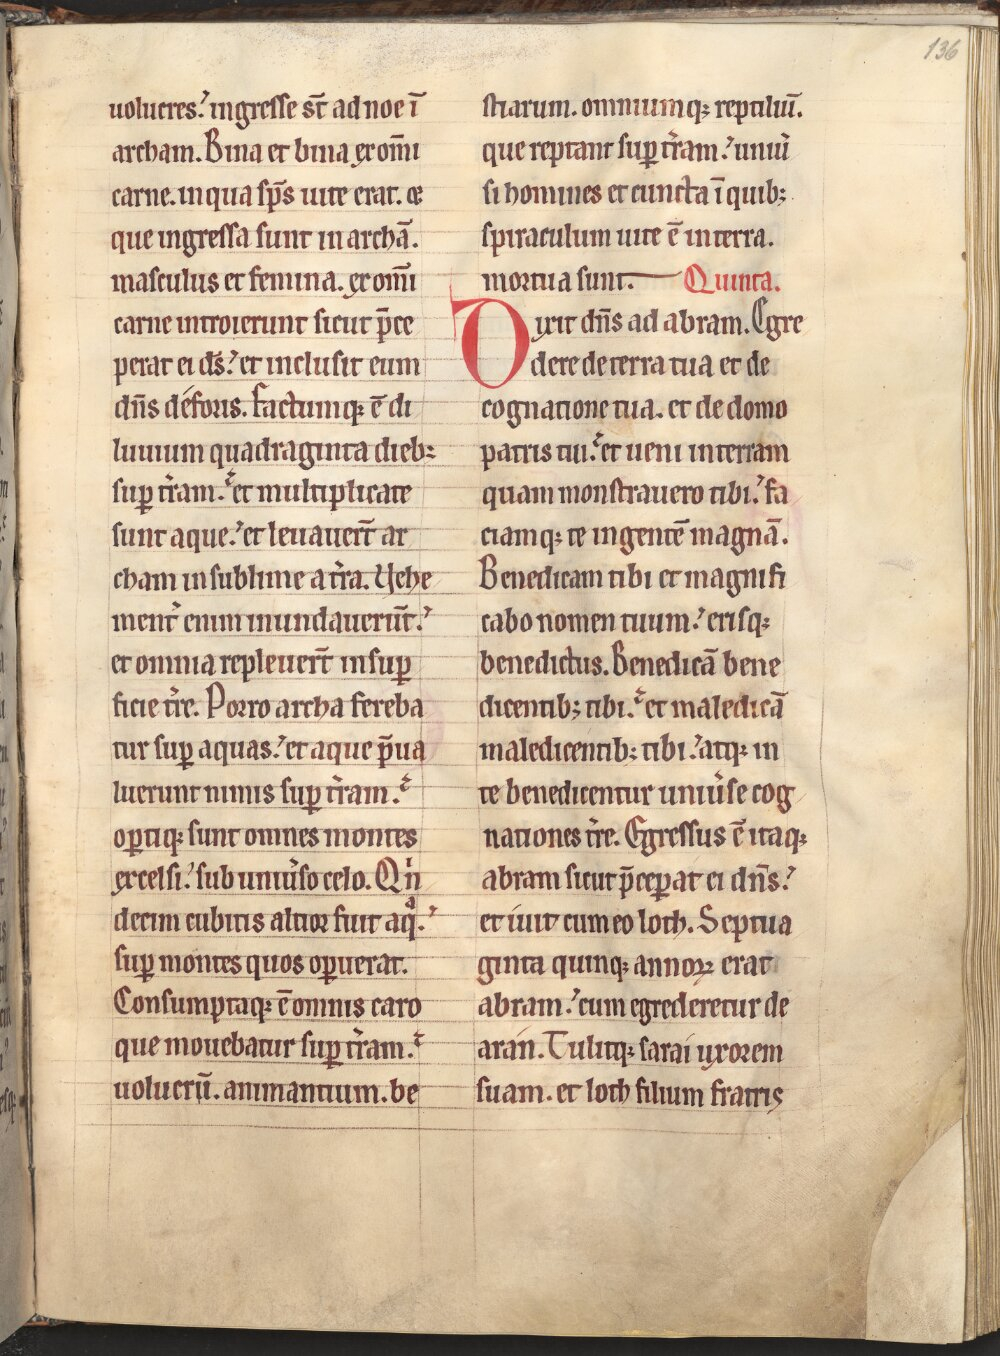 136
uolucres. ingresse st̄ ad noe ī
archam. Bina et bina ex om̄i
carne. in qua sp̄s uite erat. et
que ingressa sunt in archā.
masculus et femina. ex om̄i
carne introierunt sicut p̄ce
perat ei ds̄. et inclusit eum
dn̄s déforis. Factumq; ē di
luuium quadraginta dieb;
sup̱ tr̄am. et multiplicate
sunt aque. et leuauer̄t ar
cham in sublime a tr̄a. Uehe
ment̄ enim inundauerūt.
et omnia repleuer̄t in sup̱
ficie tr̄e. Porro archa fereba
tur sup̱ aquas. et aque p̄ua
luerunt nimis sup̱ tr̄am.
op̱tiq; sunt omnes montes
excelsi. sub uniu̓so celo. Qn̍
decim cubitis altior fuit aqᵃ.
sup̱ montes quos op̱uerat.
Consumptaq; ē omnis caro
que mouebatur sup̱ tr̄am.
uolucrū. animantium. be
stiarum. omniumq; reptiliū.
que reptant sup̱ tr̄am. uniu̓
si homines et cuncta ī quib;
spiraculum uite ē in terra.
mortua sunt. Quinta.
Dixit dn̄s ad abram. Egre
dere de terra tua et de
cognatione tua. et de domo
patris tui. et ueni in terram
quam monstrauero tibi. fa
ciamq; te in gentē magnā.
Benedicam tibi et magnifi
cabo nomen tuum. erisq;
benedictus. Benedicā bene
dicentib; tibi. et maledicā
maledicentib; tibi. atq; in
te benedicentur uniu̓se cog
nationes tr̄e. Egressus ē itaq;
abram sicut p̄cep̱at ei dn̄s.
et iuit cum eo loth. Septua
ginta quinq; annoꝝ erat
abram. cum egrederetur de
aran. Tulitq; sarai uxorem
suam. et loth filium fratris